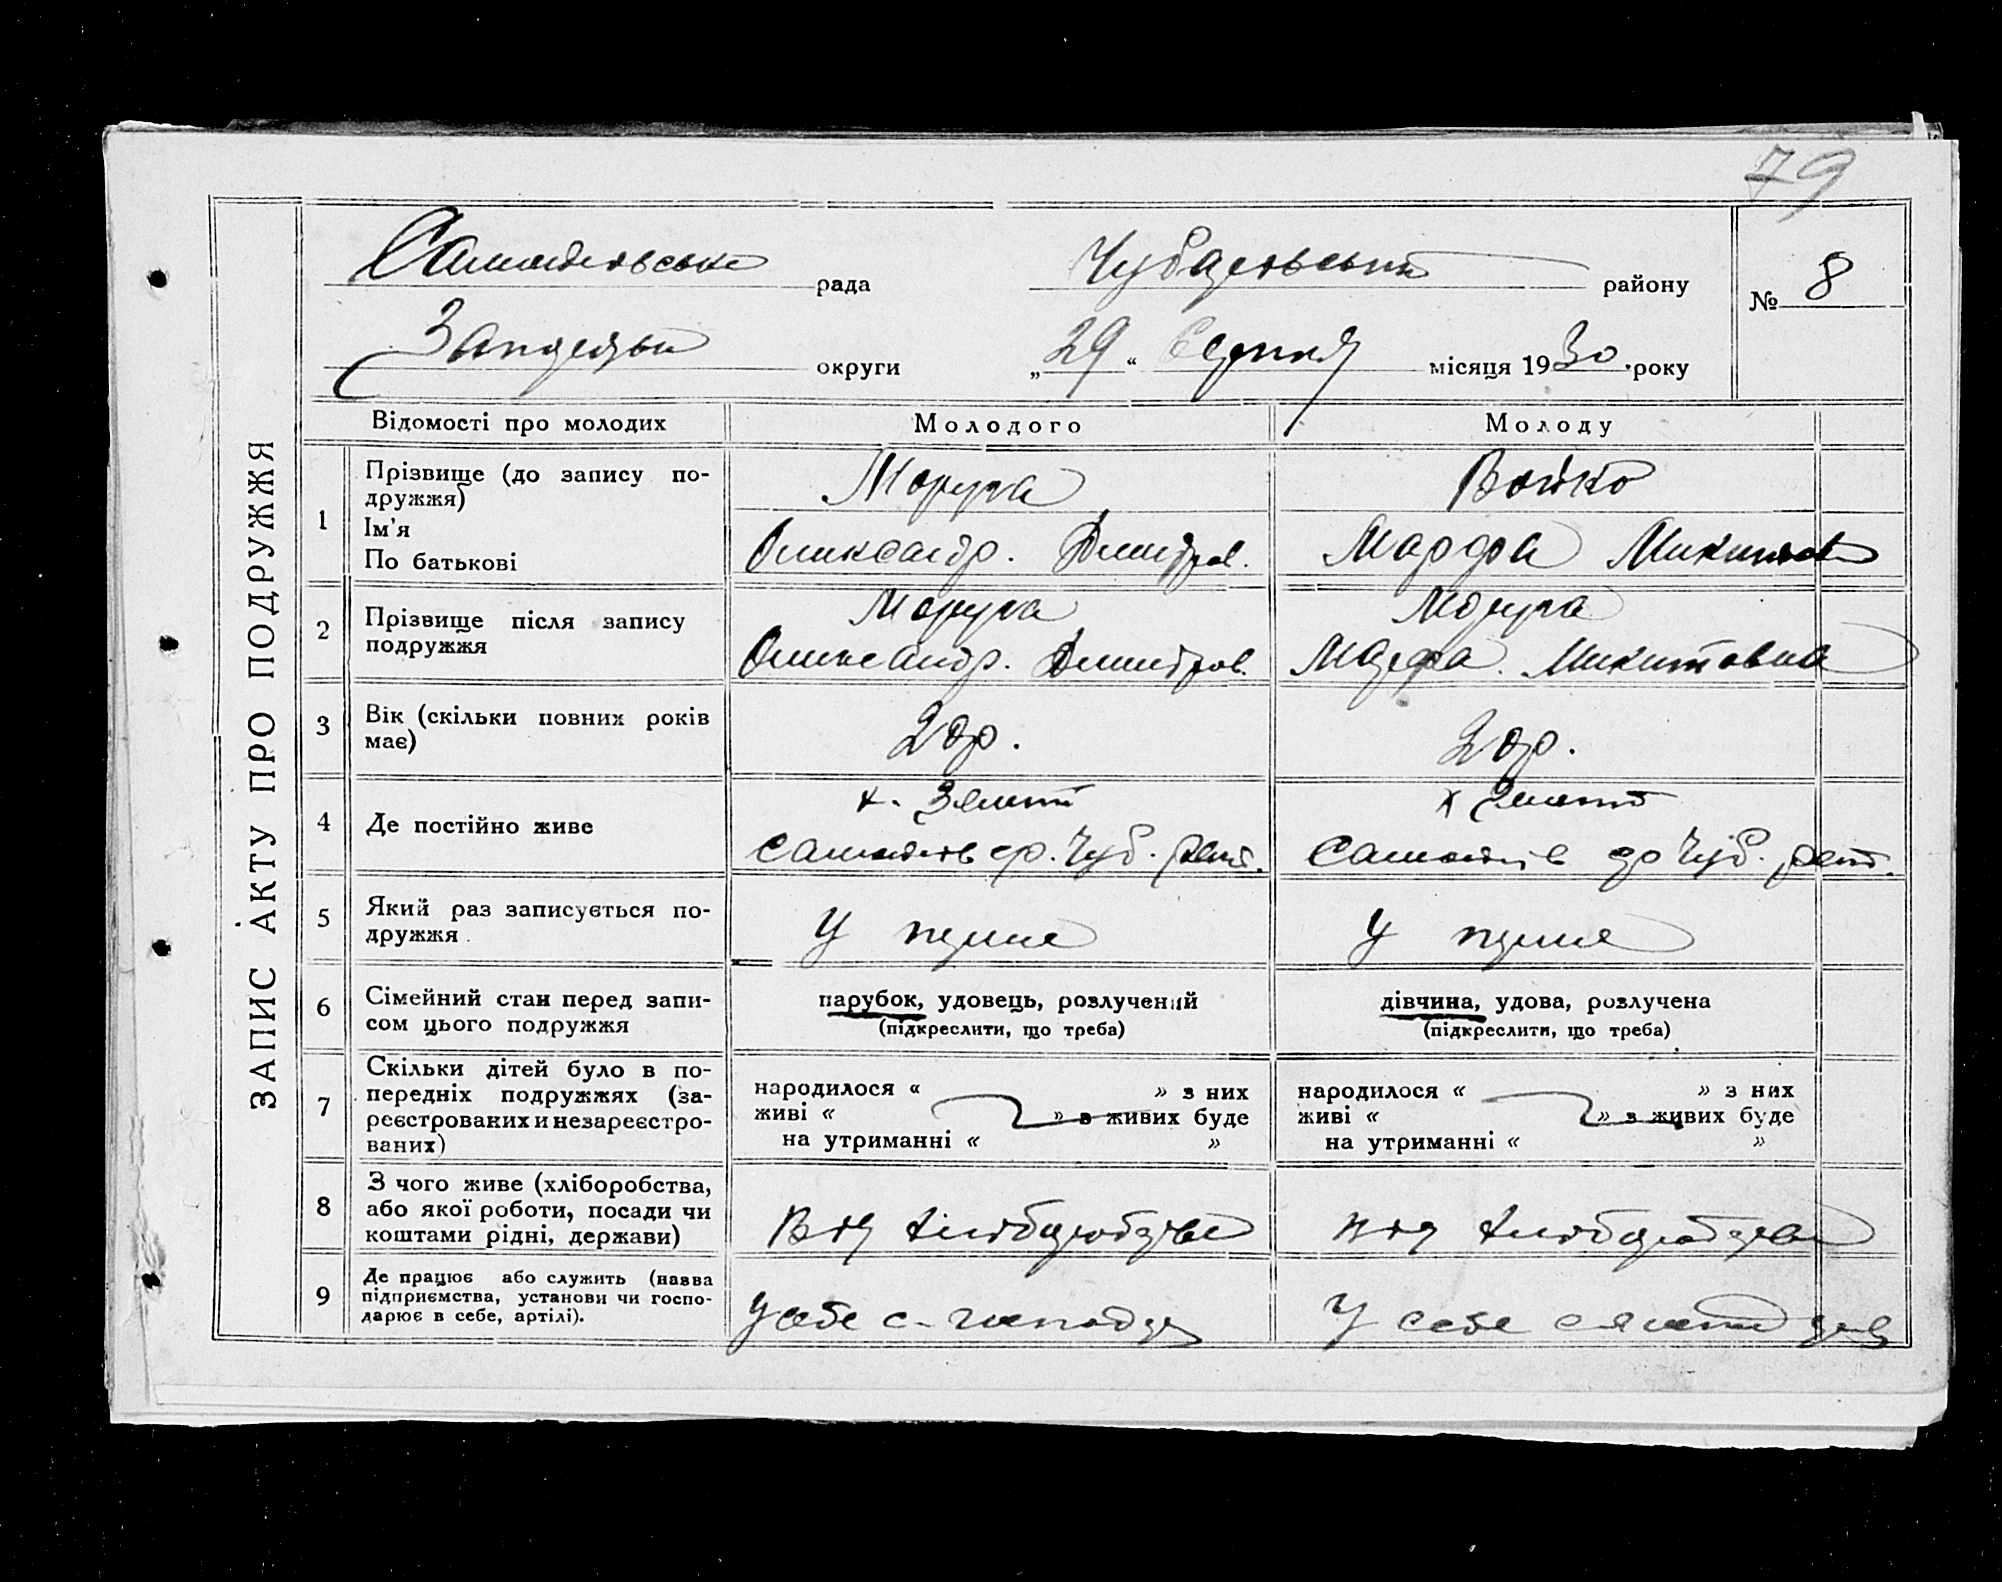 79
рада
Чубарівський району
№ 8
округи
„29“ Серпня місяця 1930 року
ЗАПИС АКТУ ПРО ПОДРУЖЖЯ
Відомості про молодих
Молодого
Молоду
1
Прізвище (до запису по-
дружжя)
Ім'я
По батькові
Бойко
Олександр. Дмитров.
Марфа
2
Прізвище після запису
подружжя
Олександр. Дмитров.
Марфа Микитовна
3
Вік (скільки повних років
має)
20р.
20р.
4
Де постійно живе
5
Який раз записується по-
дружжя
У перше
У перше
6
Сімейний стан перед запи-
сом цього подружжя
парубок, удовець, розлучений
(підкреслити, що треба)
дівчина, удова, розлучена
(підкреслити, що треба)
7
Скільки дітей було в по-
передніх подружжях (за-
реєстрованих и незареєстро-
ваних)
народилося « » з них
живі « » з живих буде
на утриманні « »
народилося « » з них
живі « » з живих буде
на утриманні « »
8
З чого живе (хліборобства,
або якої роботи, посади чи
коштами рідні, держави)
9
Де працює або служить (назва
підприємства, установи чи госпо-
дарює в себе, артілі).
у себе
У себе